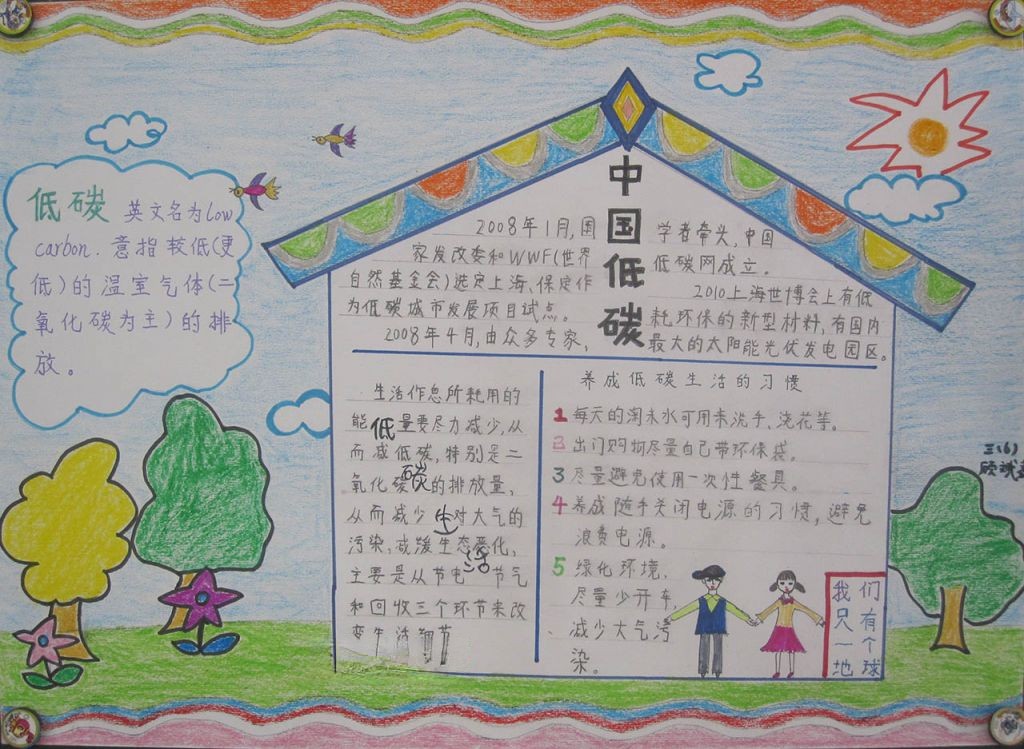 低碳 英文名为low
carbon. 意指较低(更
低)的温室气体(二
氧化碳为主)的排
放。
中国低碳
2008年1月,国
家发改委和WWF(世界
自然基金会)选定上海、保定作
为低碳城市发展项目试点。
2008年4月,由众多专家、
学者牵头,中国
低碳网成立。
2010上海世博会上有低
耗环保的新型材料,有国内
最大的太阳能光伏发电园区。
低碳生活
生活作息所耗用的
能量要尽力减少,从
而减低碳,特别是二
氧化碳的排放量,
从而减少对大气的
污染,减缓生态恶化,
主要是从节电 节气
和回收三个环节来改
变生活细节
养成低碳生活的习惯
1 每天的淘米水可用来洗手、浇花等。
2 出门购物尽量自己带环保袋。
3 尽量避免使用一次性餐具。
4 养成随手关闭电源的习惯,避免
浪费电源。
5 绿化环境,
尽量少开车,
减少大气污
染。
我们
只有
一个
地球
三(6)